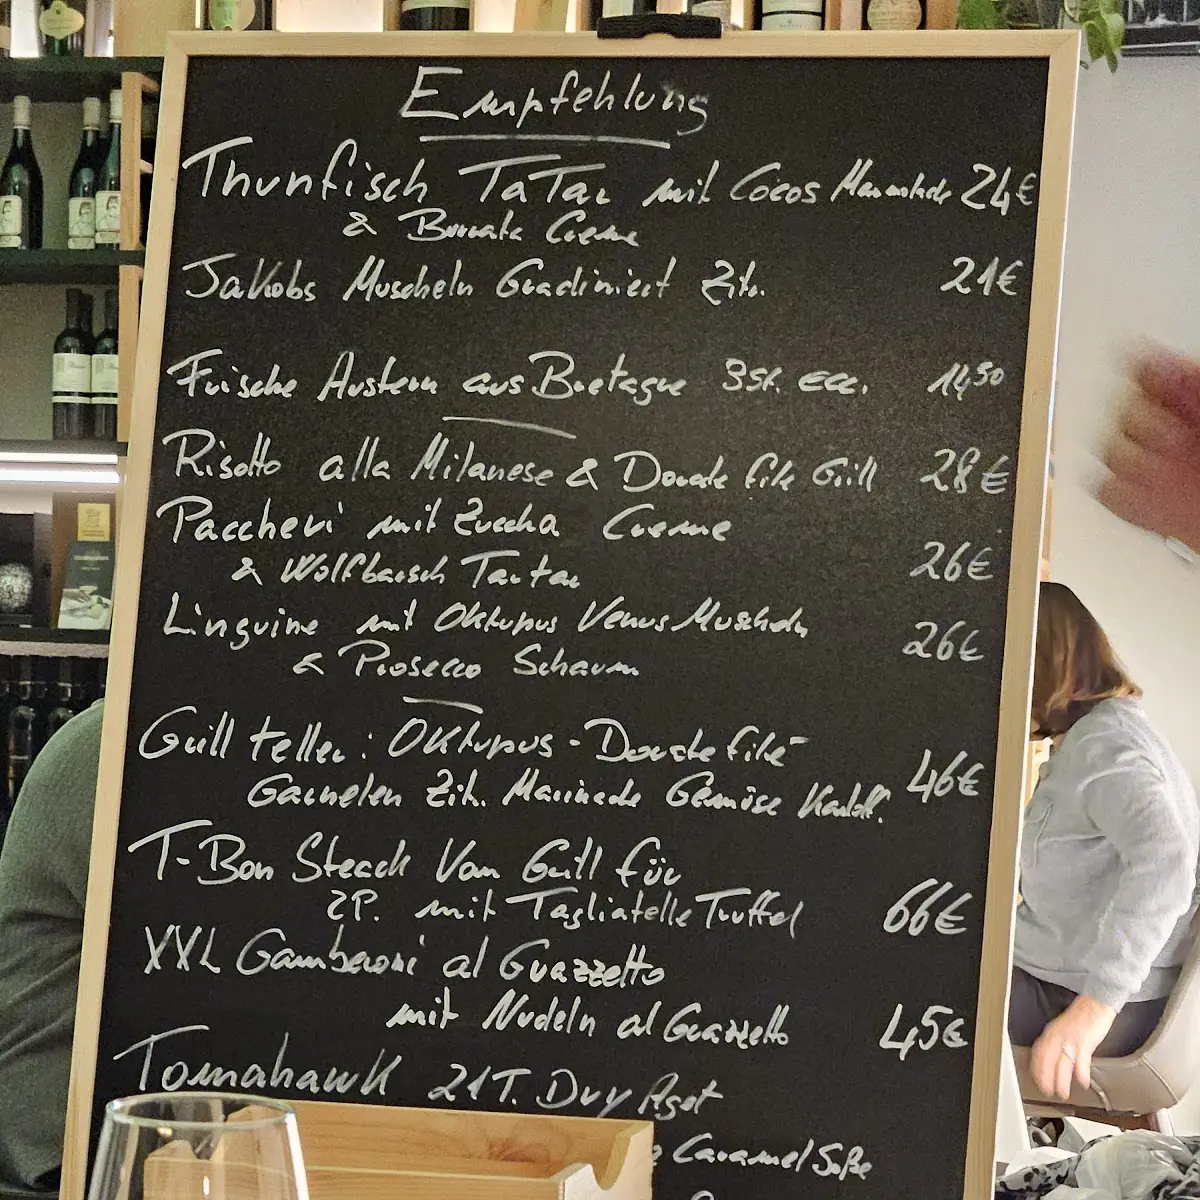 Empfehlung
Thunfisch TaTar mit Cocos Marmelade 24€
& Burrata Creme
Jakobs Muscheln Gradiniert Zit. 21€
Frische Austern aus Bretagne 3St. 14,50
Risotto alla Milanese & Dorade filé Grill 28€
Paccheri mit Zuccha Creme
& Wolfbarsch Tartar 26€
Linguine mit Oktupus Venus Muscheln 26€
& Prosecco Schaum
Grill teller: Oktupus - Dorade filé - 46€
Garnelen Zit. Marinade Gemüse Kartoff.
T-Bon Steack Vom Grill für
2P. mit Tagliatelle Truffel 66€
XXL Gamberoni al Guazzetto
mit Nudeln al Guazzetto 45€
Tomahawk 21T. Dry Aget
Caramel Soße